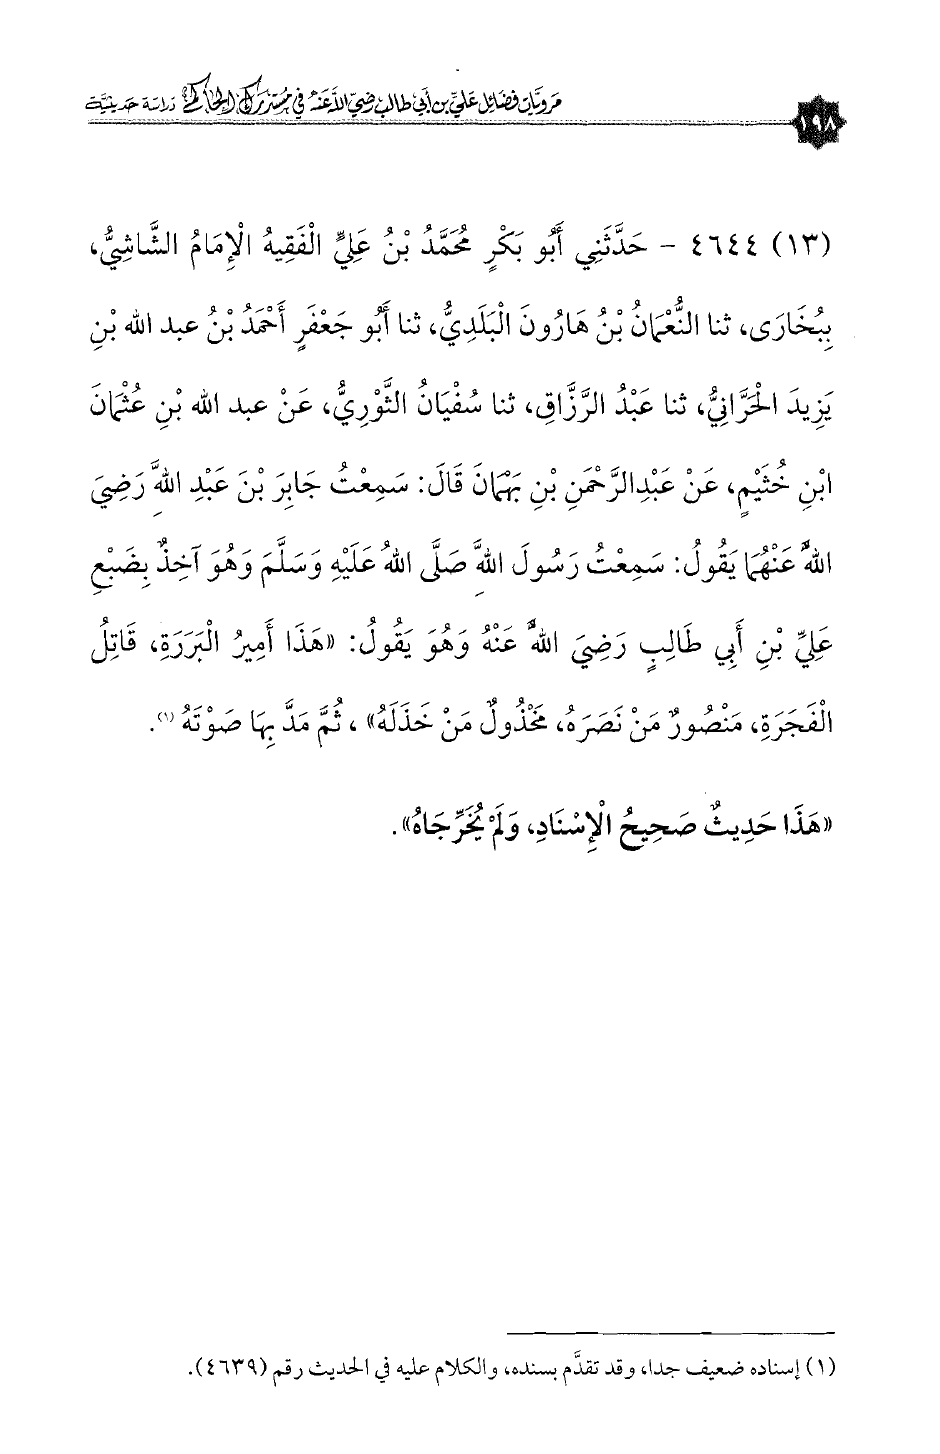 مرويات فضائل علي بن أبي طالب رضي الله عنه في مستدرك الحاكم دراسة حديثية
١٩٨
(١٣) ٤٦٤٤ - حَدَّثَنِي أَبُو بَكْرٍ مُحَمَّدُ بْنُ عَلِيٍّ الْفَقِيهُ الْإِمَامُ الشَّاشِيُّ،
بِبُخَارَى، ثنا النُّعْمَانُ بْنُ هَارُونَ الْبَلَدِيُّ، ثنا أَبُو جَعْفَرٍ أَحْمَدُ بْنُ عبد الله بْنِ
يَزِيدَ الْحَرَّانِيُّ، ثنا عَبْدُ الرَّزَّاقِ، ثنا سُفْيَانُ الثَّوْرِيُّ، عَنْ عبد الله بْنِ عُثْمَانَ
ابْنِ خُثَيْمٍ، عَنْ عَبْدِالرَّحْمَنِ بْنِ بَهْمَانَ قَالَ: سَمِعْتُ جَابِرَ بْنَ عَبْدِ اللهِ رَضِيَ
اللهُ عَنْهُمَا يَقُولُ: سَمِعْتُ رَسُولَ اللهِ صَلَّى اللهُ عَلَيْهِ وَسَلَّمَ وَهُوَ آخِذٌ بِضَبْعِ
عَلِيِّ بْنِ أَبِي طَالِبٍ رَضِيَ اللهُ عَنْهُ وَهُوَ يَقُولُ: «هَذَا أَمِيرُ الْبَرَرَةِ، قَاتِلُ
الْفَجَرَةِ، مَنْصُورٌ مَنْ نَصَرَهُ، مَخْذُولٌ مَنْ خَذَلَهُ» ، ثُمَّ مَدَّ بِهَا صَوْتَهُ (١).
«هَذَا حَدِيثٌ صَحِيحُ الْإِسْنَادِ، وَلَمْ يُخَرِّجَاهُ».
(١) إسناده ضعيف جدا، وقد تقدَّم بسنده، والكلام عليه في الحديث رقم (٤٦٣٩).